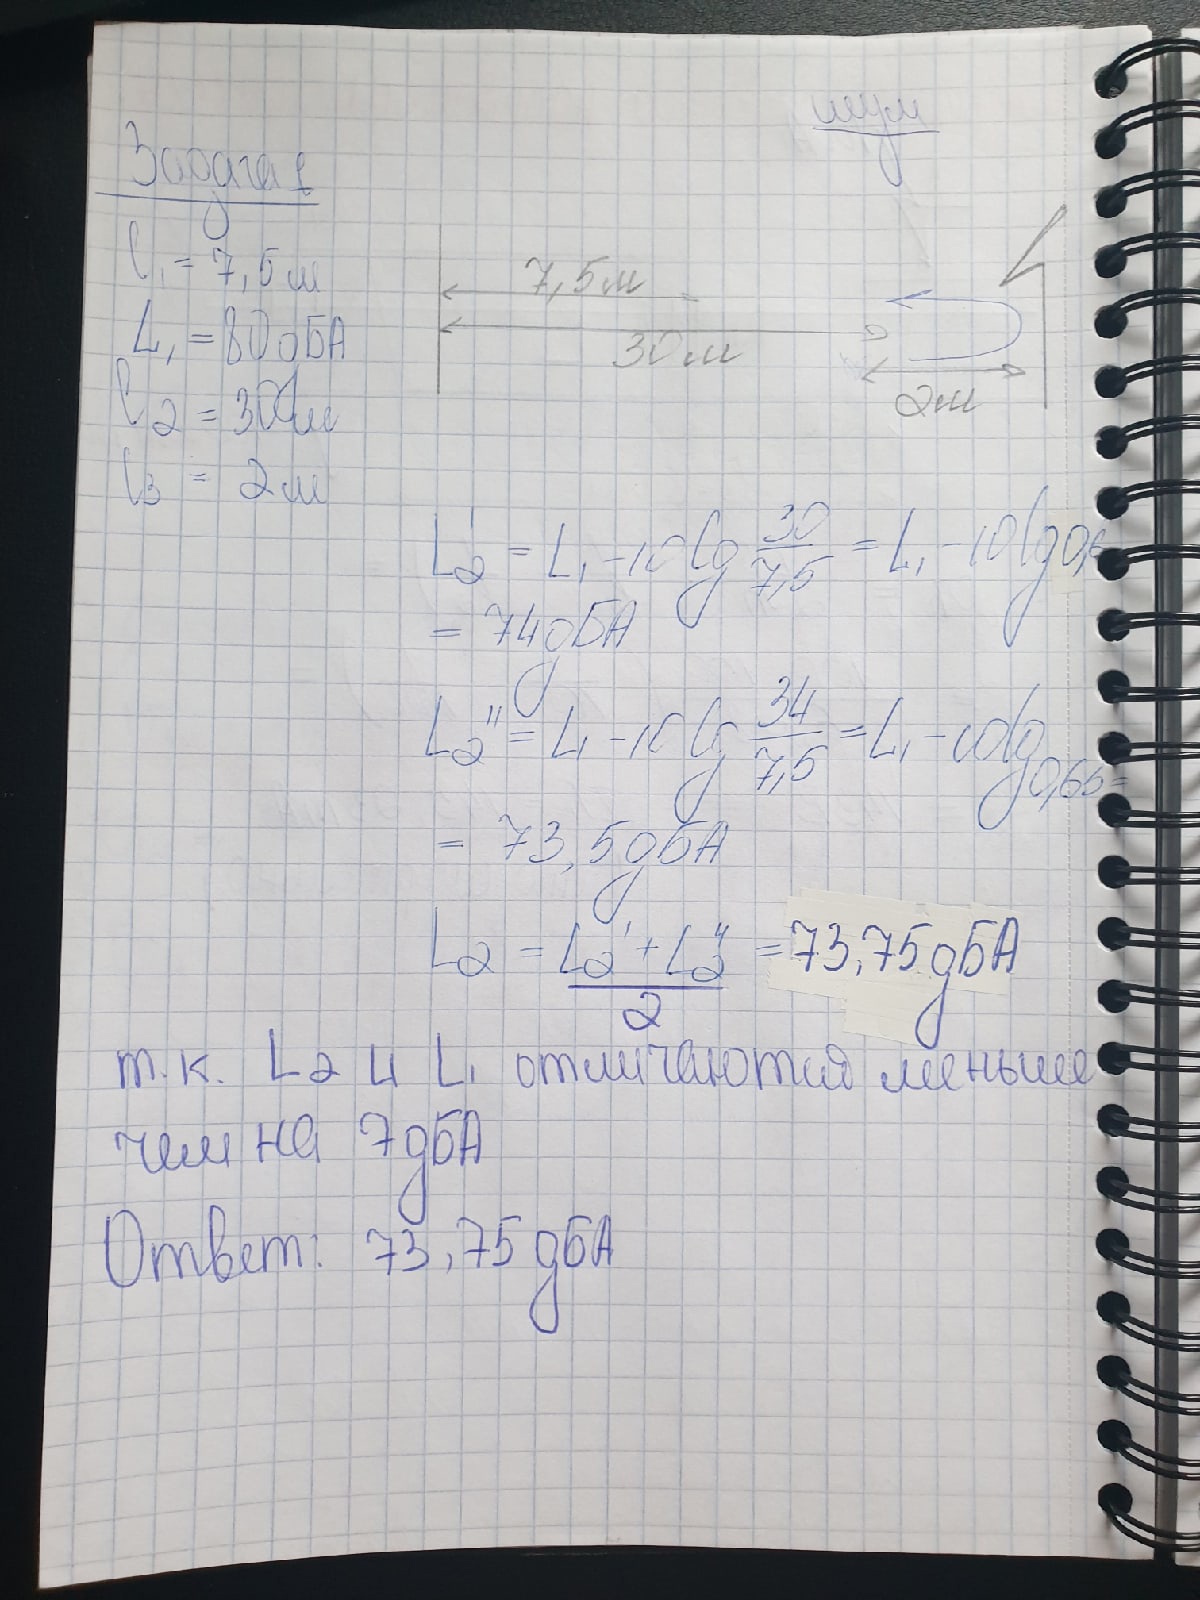 шум
Задача 1
l₁ = 7,5м
L₁ = 80дБА
l₂ = 30м
l₃ = 2м
7,5м
30м
2м
L₂' = L₁ - 10 lg 30/7,5 = L₁ - 10 lg 0,6
= 74дБА
L₂'' = L₁ - 10 lg 34/7,5 = L₁ - 10lg 0,65 =
= 73,5дБА
L₂ = (L₂' + L₂'')/2 = 73,75дБА
т.к. L₂ и L₁ отличаются меньше
чем на 7дБА
Ответ: 73,75дБА